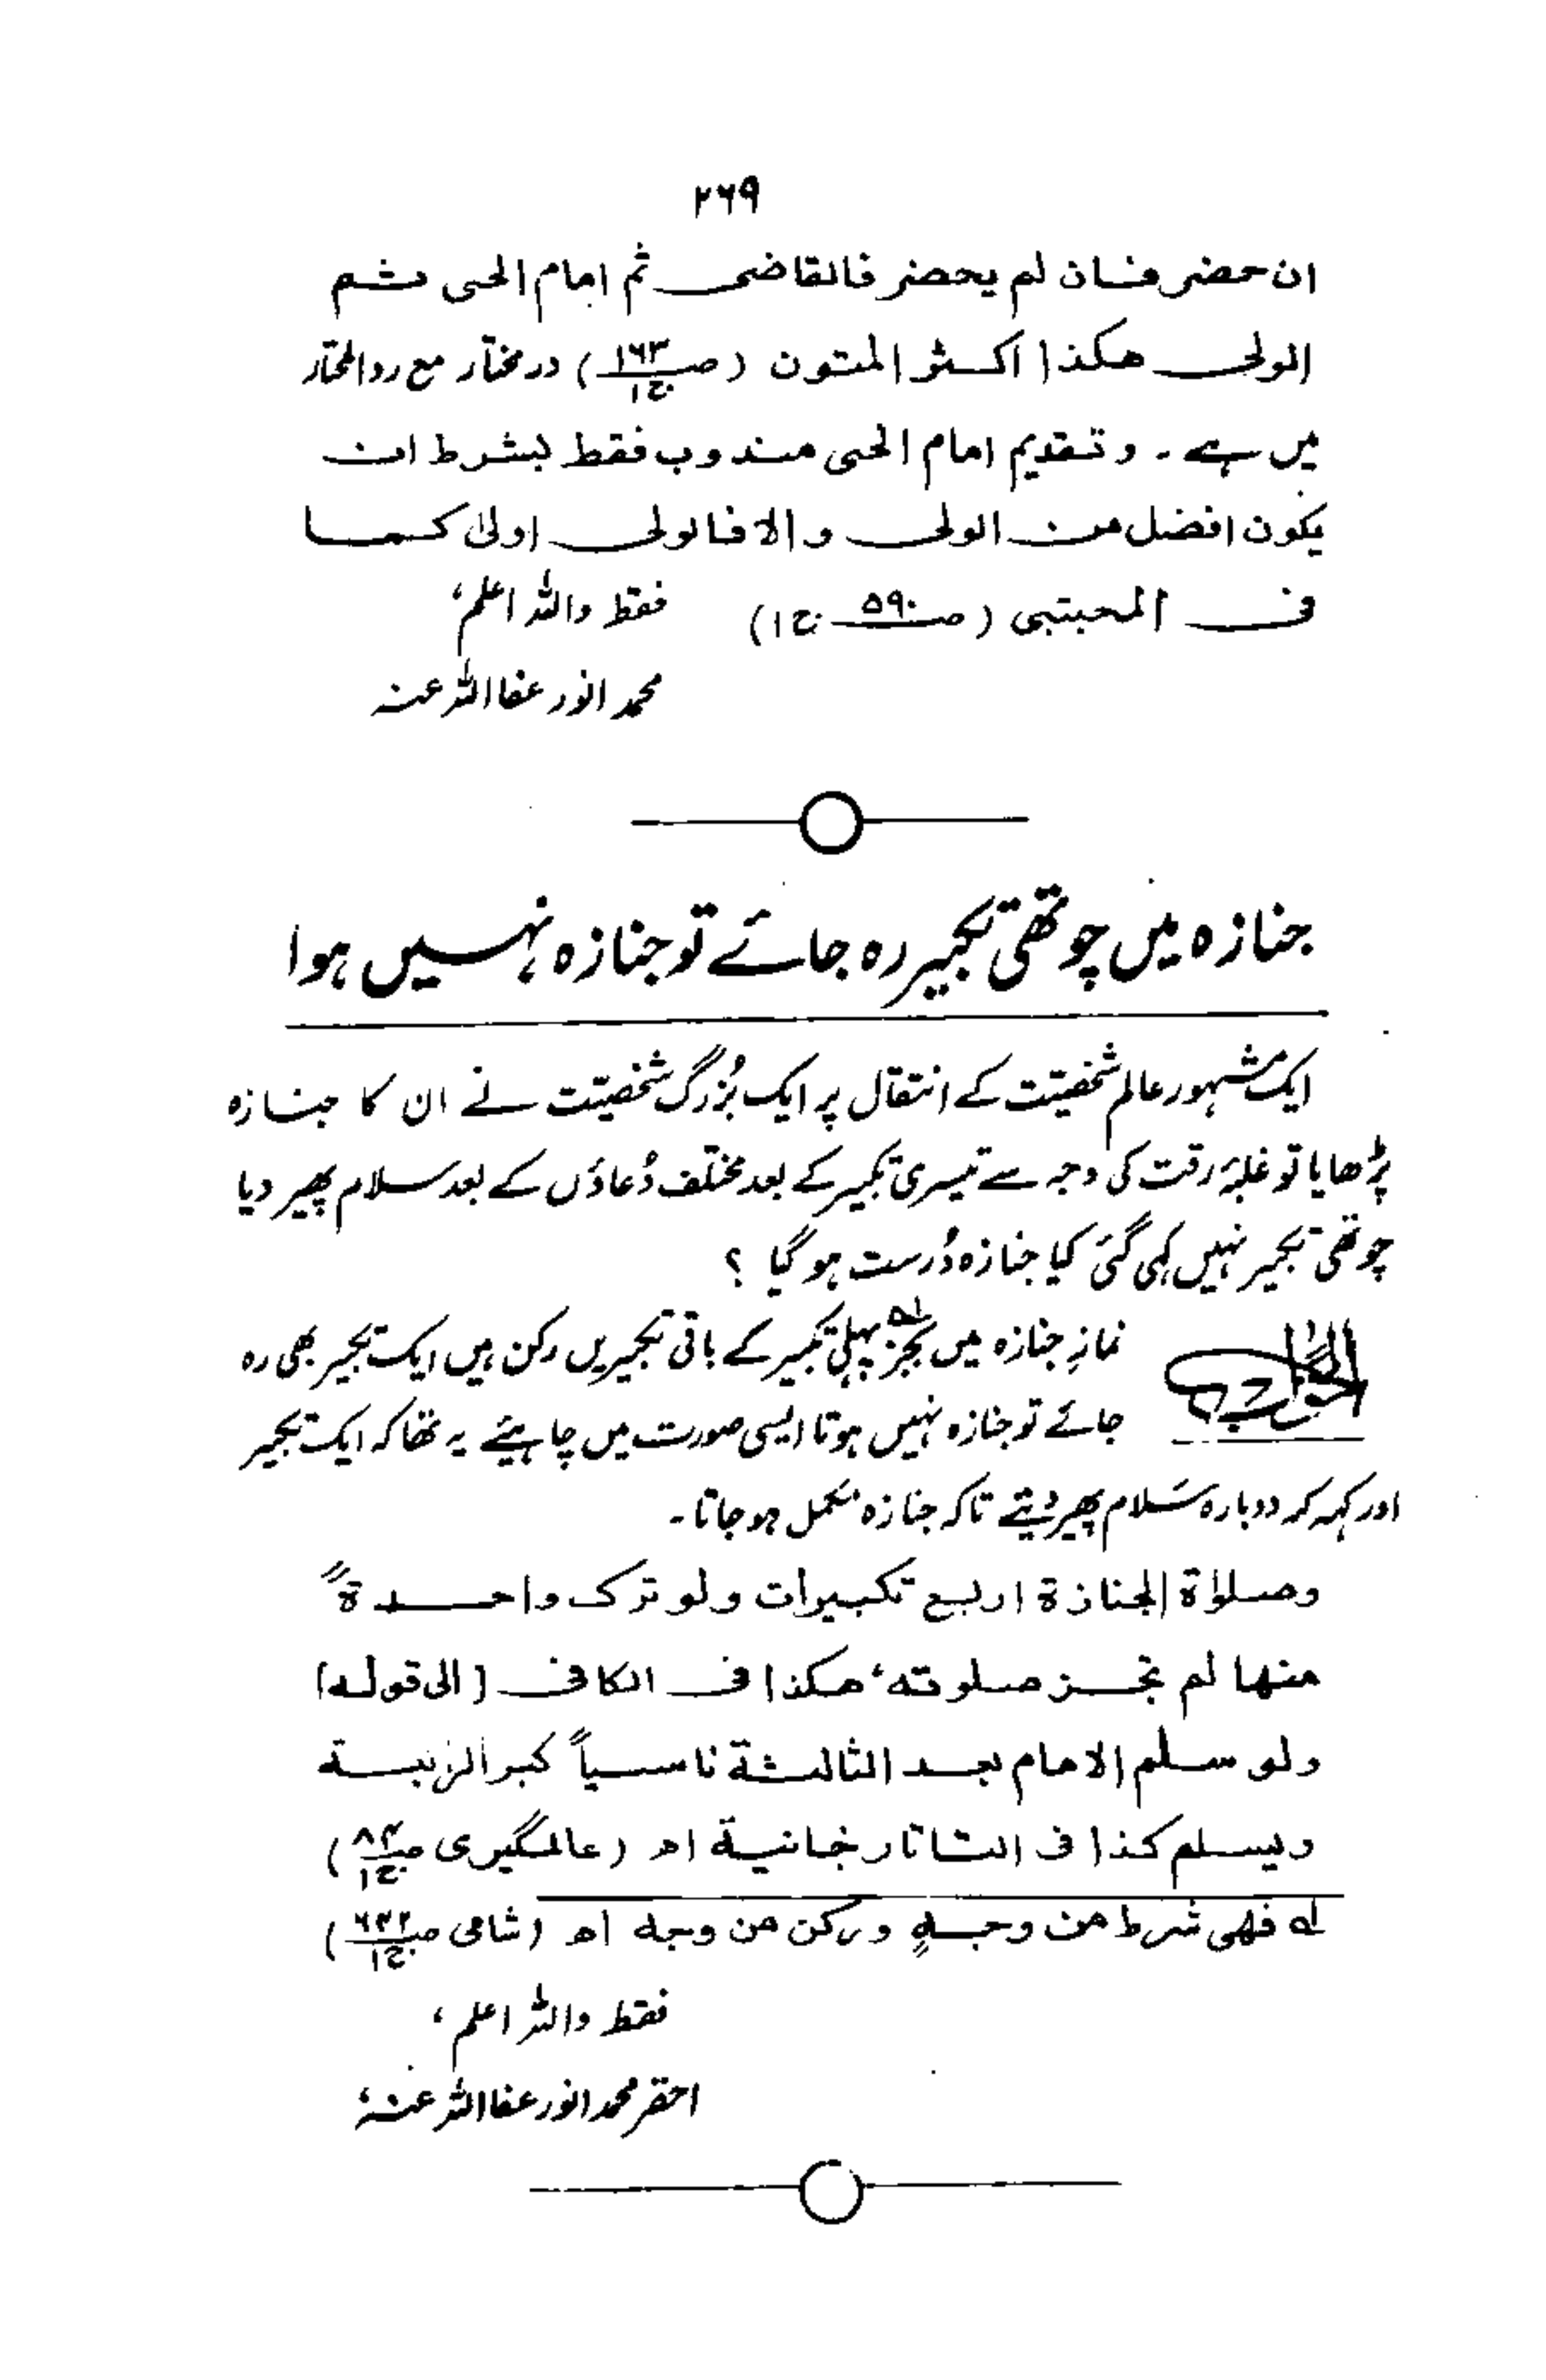 ۲۶۹
ان حضر فان لم يحضر فالقاضى ثم امام الحى ثم
الولى هكذا اكثر المتون (صـ۱۶۳ ج۱) درمختار مع ردالمحتار
میں ہے ۔ وتقديم امام الحى مندوب فقط بشرط ان
يكون افضل من الولى والا فالولى اولىٰ كما
فى المجتبى (صـ۵۹۰ ج۱) فقط واللہ اعلم،
محمد انور عفا اللہ عنہ
جنازہ میں چوتھی تکبیر رہ جائے تو جنازہ نہیں ہوا
ایک مشہور عالم شخصیّت کے انتقال پر ایک بُزرگ شخصیّت نے ان کا جنازہ
پڑھایا تو غلبۂ رقت کی وجہ سے تیسری تکبیر کے بعد مختلف دُعاؤں کے بعد سلام پھیر دیا
چوتھی تکبیر نہیں کہی گئی کیا جنازہ دُرست ہوگیا ؟
الجواب نمازِ جنازہ میں بجز لہ پہلی تکبیر کے باقی تکبیریں رکن ہیں ایک تکبیر بھی رہ
جائے تو جنازہ نہیں ہوتا ایسی صورت میں چاہیئے یہ تھا کہ ایک تکبیر
اور کہہ کر دوبارہ سَلام پھیر دیتے تاکہ جنازہ مکمل ہوجاتا ۔
وصلوٰة الجنازة اربع تكبيرات ولو ترك واحدةً
منها لم تجز صلوته، هكذا فى الكافى [الى قوله]
ولو سلم الامام بعد الثالثة ناسياً كبر الرابعة
ويسلم كذا فى التاتارخانية اھ (عالمگیری صـ۸۴ ج۱)
لہ فهى شرط من وجہٍ وركن من وجہ اھ (شامی صـ۶۴۲ ج۱)
فقط واللہ اعلم،
احقر محمد انور عفا اللہ عنہ،